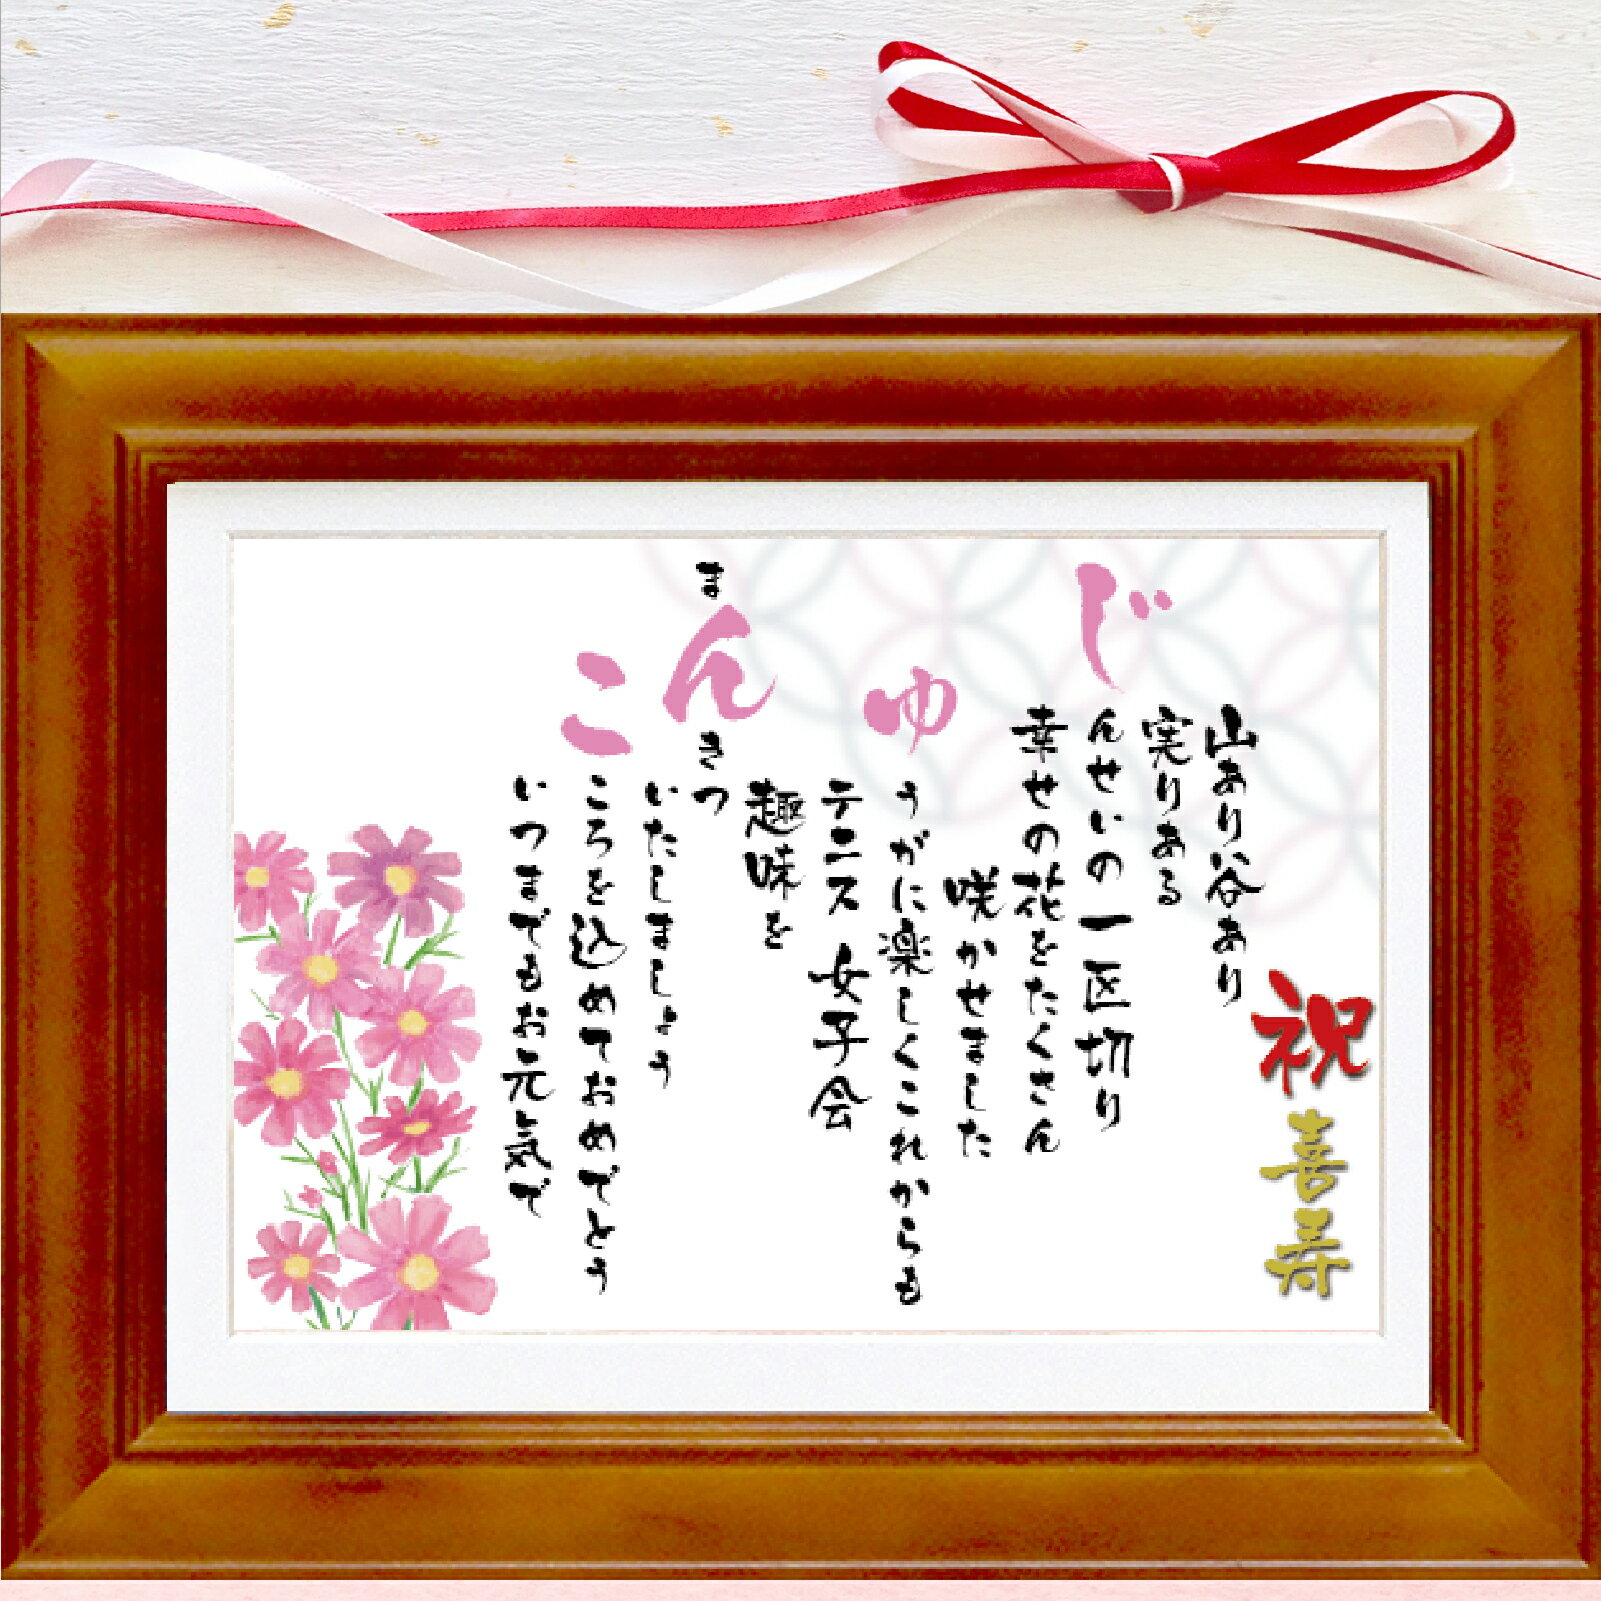 祝 喜寿
山あり谷あり
実りある
じんせいの一区切り
幸せの花をたくさん
咲かせました
ゆうがに楽しくこれからも
テニス 女子会
趣味を
まんきつ
いたしましょう
こころを込めておめでとう
いつまでもお元気で